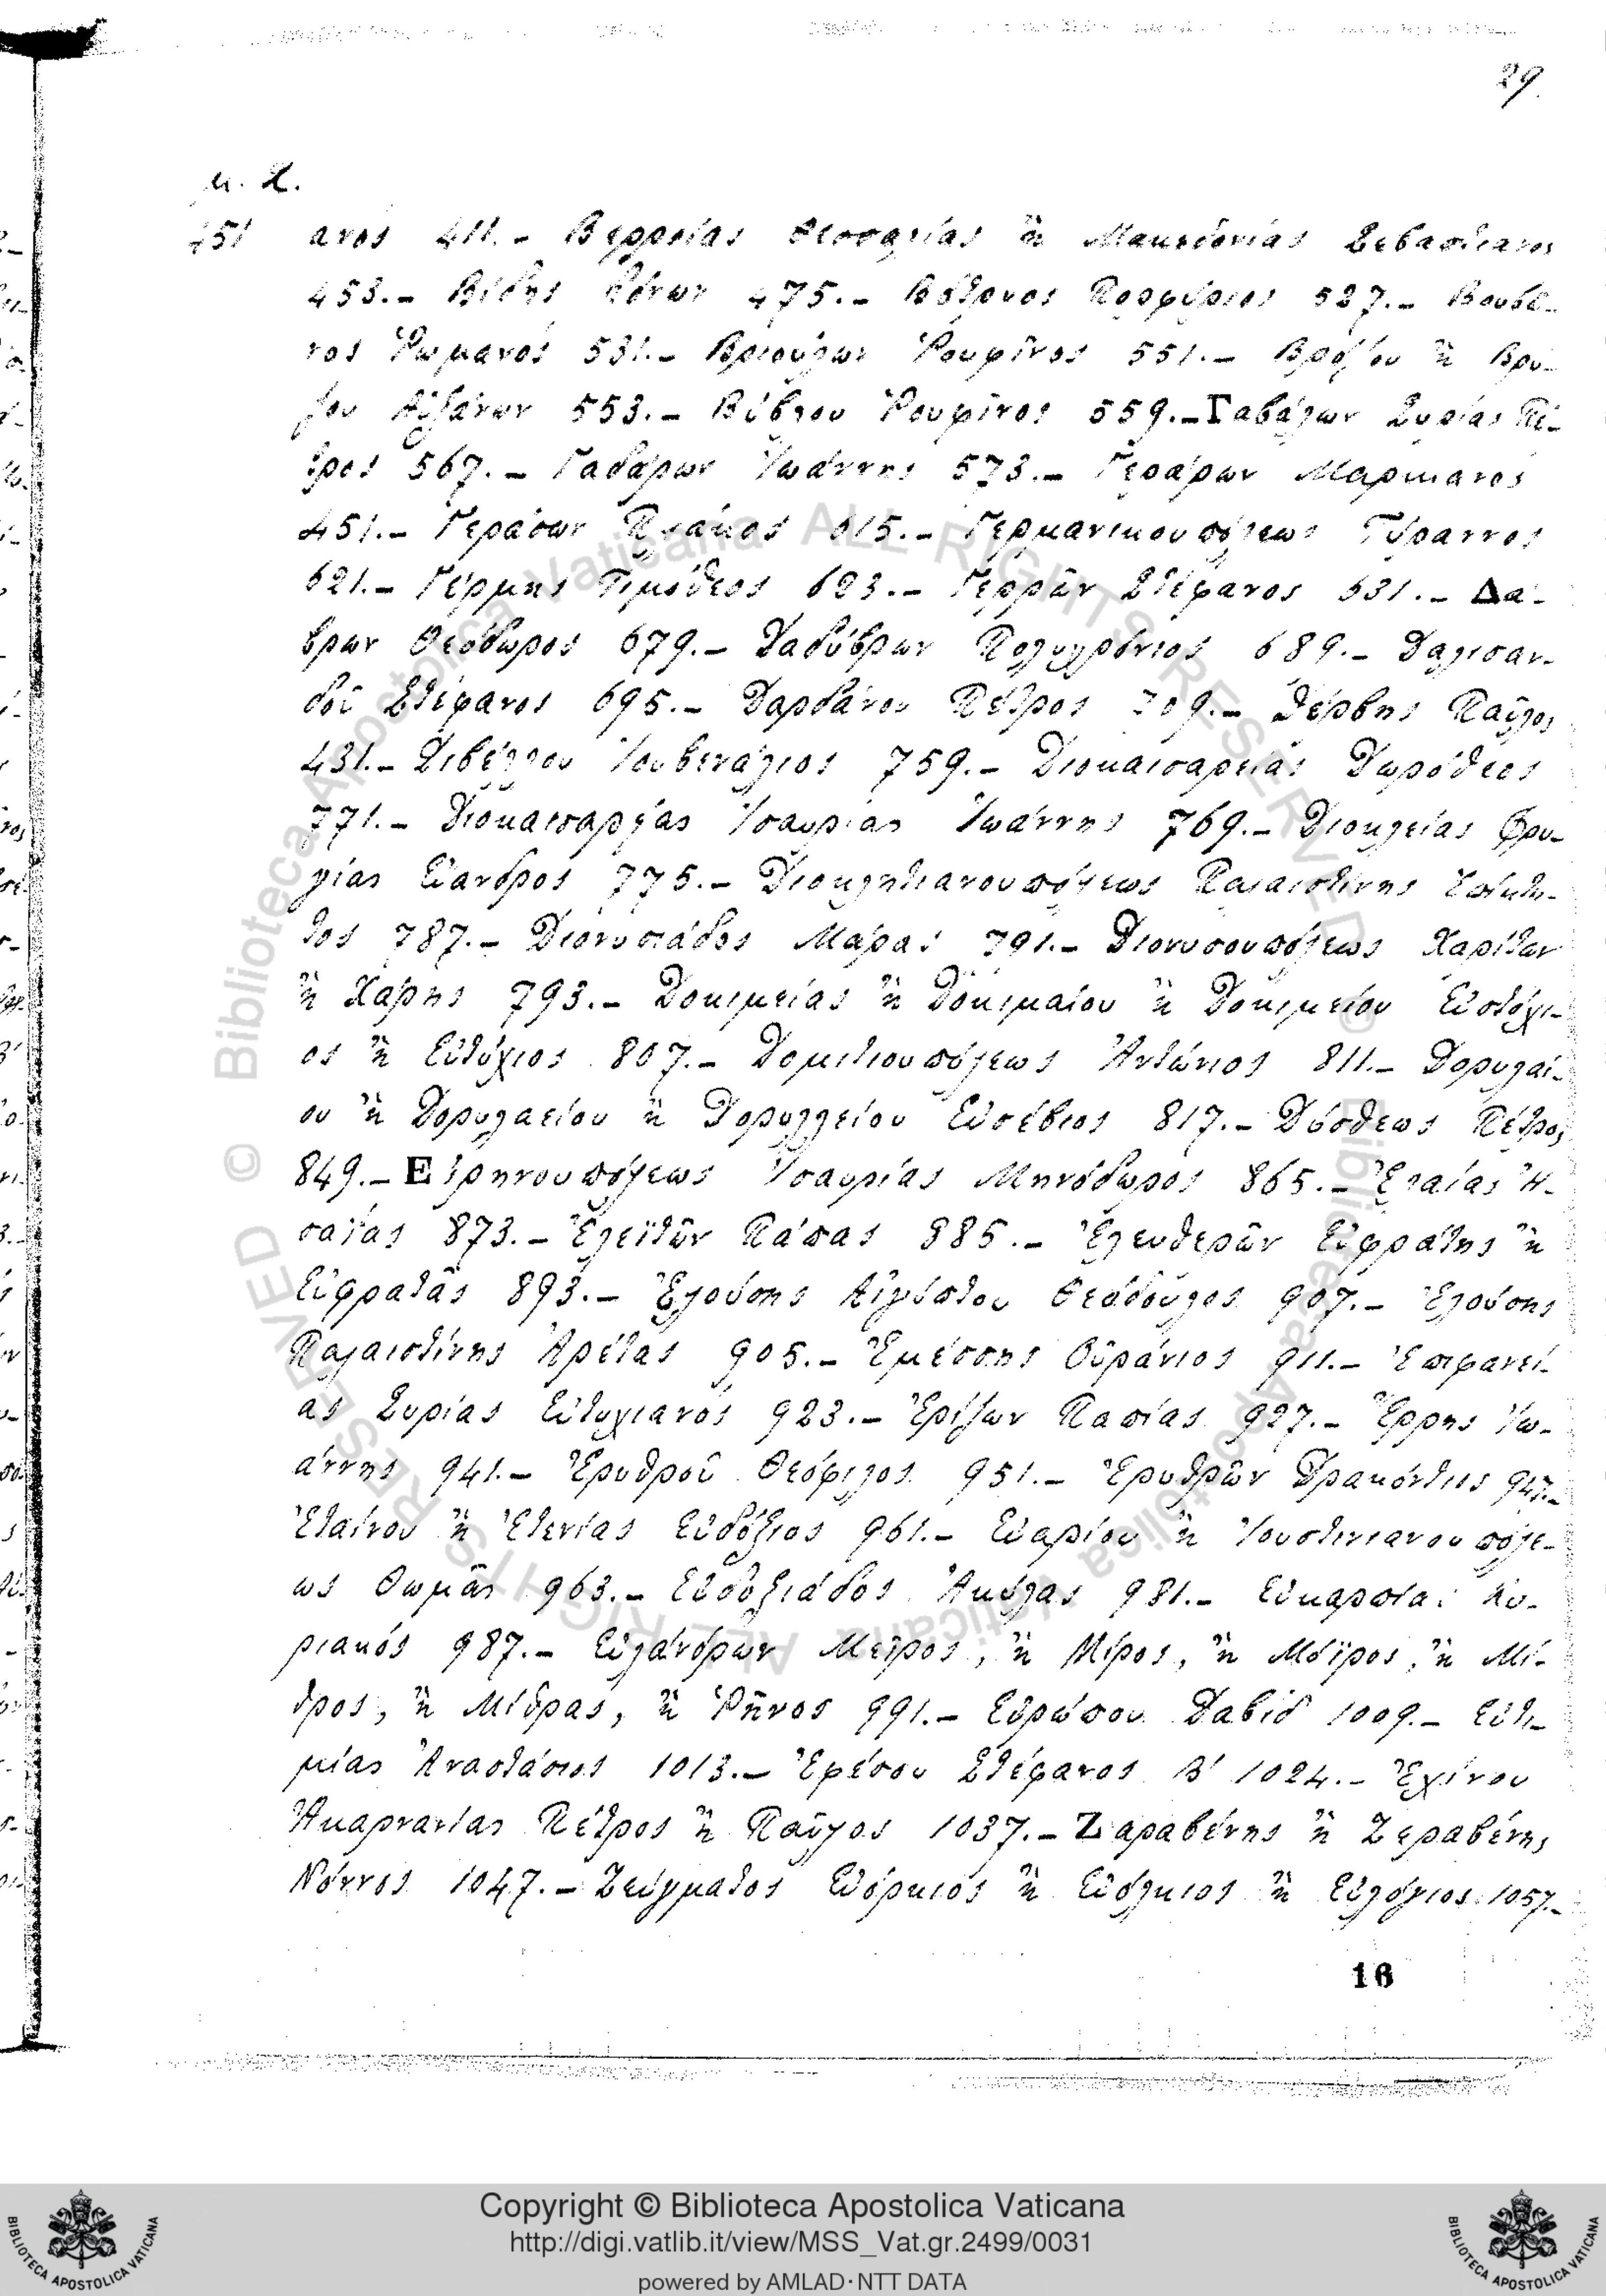 29
μ. Χ.
451 ανος 411.- Βερροίας Θεσσαλίας ἢ Μακεδονίας Σεβαστιανος
453.- Βίδης 475.- Βόστρνος Πορφύριος 527.- Βουβα-
νος Ῥωμανός 531.- Βριούλων Ῥουφῖνος 551.- Βρύζου ἢ Βρυ-
ζου Αὐξάνων 553.- Βύβλου Ῥουφῖνος 559.- Γαβάλων Συρίας Πέ-
τρος 567.- Γαδάρων Ἰωάννης 573.- Γεράρων Μαρκιανός
451.- Γεράσων Πλάκος 615.- Γερμανικουπόλεως Τύραννος
621.- Γέρμης Τιμόθεος 623.- Γερρῶν Στέφανος 631.- Δα-
βρων Θεόδωρος 679.- Δαδύβρων Πολυχρόνιος 689.- Δαλισαν-
δοῦ Στέφανος 695.- Δαρδάνου Πέτρος 709.- Δέρβης Παῦλος
431.- Διβέλλου Ἰουβενάλιος 759.- Διοκαισαρείας Δωρόθεος
771.- Διοκαισαρείας Ἰσαυρίας Ἰωάννης 769.- Διοκλείας Φρυ-
γίας Εὐανδρος 775.- Διοκλητιανουπόλεως Παλαιστίνης Ἐπίκτη-
τος 787.- Διονυσιάδος Μάρας 791.- Διονυσουπόλεως Χαρίτων
ἢ Χάρης 793.- Δοκιμείας ἢ Δοκιμαίου ἢ Δοκιμείου Εὐστόχι-
ος ἢ Εὐτύχιος 807.- Δομετιουπόλεως Ἀντώνιος 811.- Δορυλαί-
ου ἢ Δορυλαείου ἢ Δορυλλείου Εὐσέβιος 817.- Δύσθεως Πέτρος
849.- Εἰρηνουπόλεως Ἰσαυρίας Μηνόδωρος 865.- Ἐλαίας Ἠ-
σαΐας 873.- Ἐλεϊτῶν Πάπας 885.- Ἐλευθερῶν Εὐφράτης ἢ
Εὐφρατᾶς 893.- Ἐλούσης Αἰγύπτου Θεόδουλος 907.- Ἐλούσης
Παλαιστίνης Ἀρέτας 905.- Ἐμέσσης Οὐράνιος 911.- Ἐπιφανεί-
ας Συρίας Εὐτυχιανός 923.- Ἐρίζων Παπίας 927.- Ἔρρης Ἰω-
άννης 941.- Ἐρυθροῦ Θεόφιλος 951.- Ἐρυθρῶν Δρακόντιος 947.-
Ἐταίνου ἢ Ἐτενίας Εὐδόξιος 961.- Εὐαρίου ἢ Ἰουστινιανουπόλε-
ως Θωμᾶς 963.- Εὐδοξιάδος Ἀκύλας 981.- Εὐκαρπίας Κυ-
ριακός 987.- Εὐλάνδρων Μεῖρος, ἢ Μίρος, ἢ Μόϊρος, ἢ Μί-
θρος, ἢ Μίθρας, ἢ Ῥῆνος 991.- Εὐρώπου Δαβίδ 1009.- Εὐτι-
μίας Ἀναστάσιος 1013.- Ἐφέσου Στέφανος Β' 1024.- Ἐχίνου
Ἀκαρνανίας Πέτρος ἢ Παῦλος 1037.- Ζαραβένης ἢ Ζεραβένης
Νόννος 1047.- Ζεύγματος Εὐόρκιος ἢ Εὐόλκιος ἢ Εὐλόγιος 1057.-
16
© Biblioteca Apostolica Vaticana ALL RIGHTS RESERVED © Biblioteca Apostolica Vaticana ALL RIGHTS RESERVED
Copyright © Biblioteca Apostolica Vaticana
http://digi.vatlib.it/view/MSS_Vat.gr.2499/0031
powered by AMLAD·NTT DATA
BIBLIOTECA APOSTOLICA VATICANA
BIBLIOTECA APOSTOLICA VATICANA